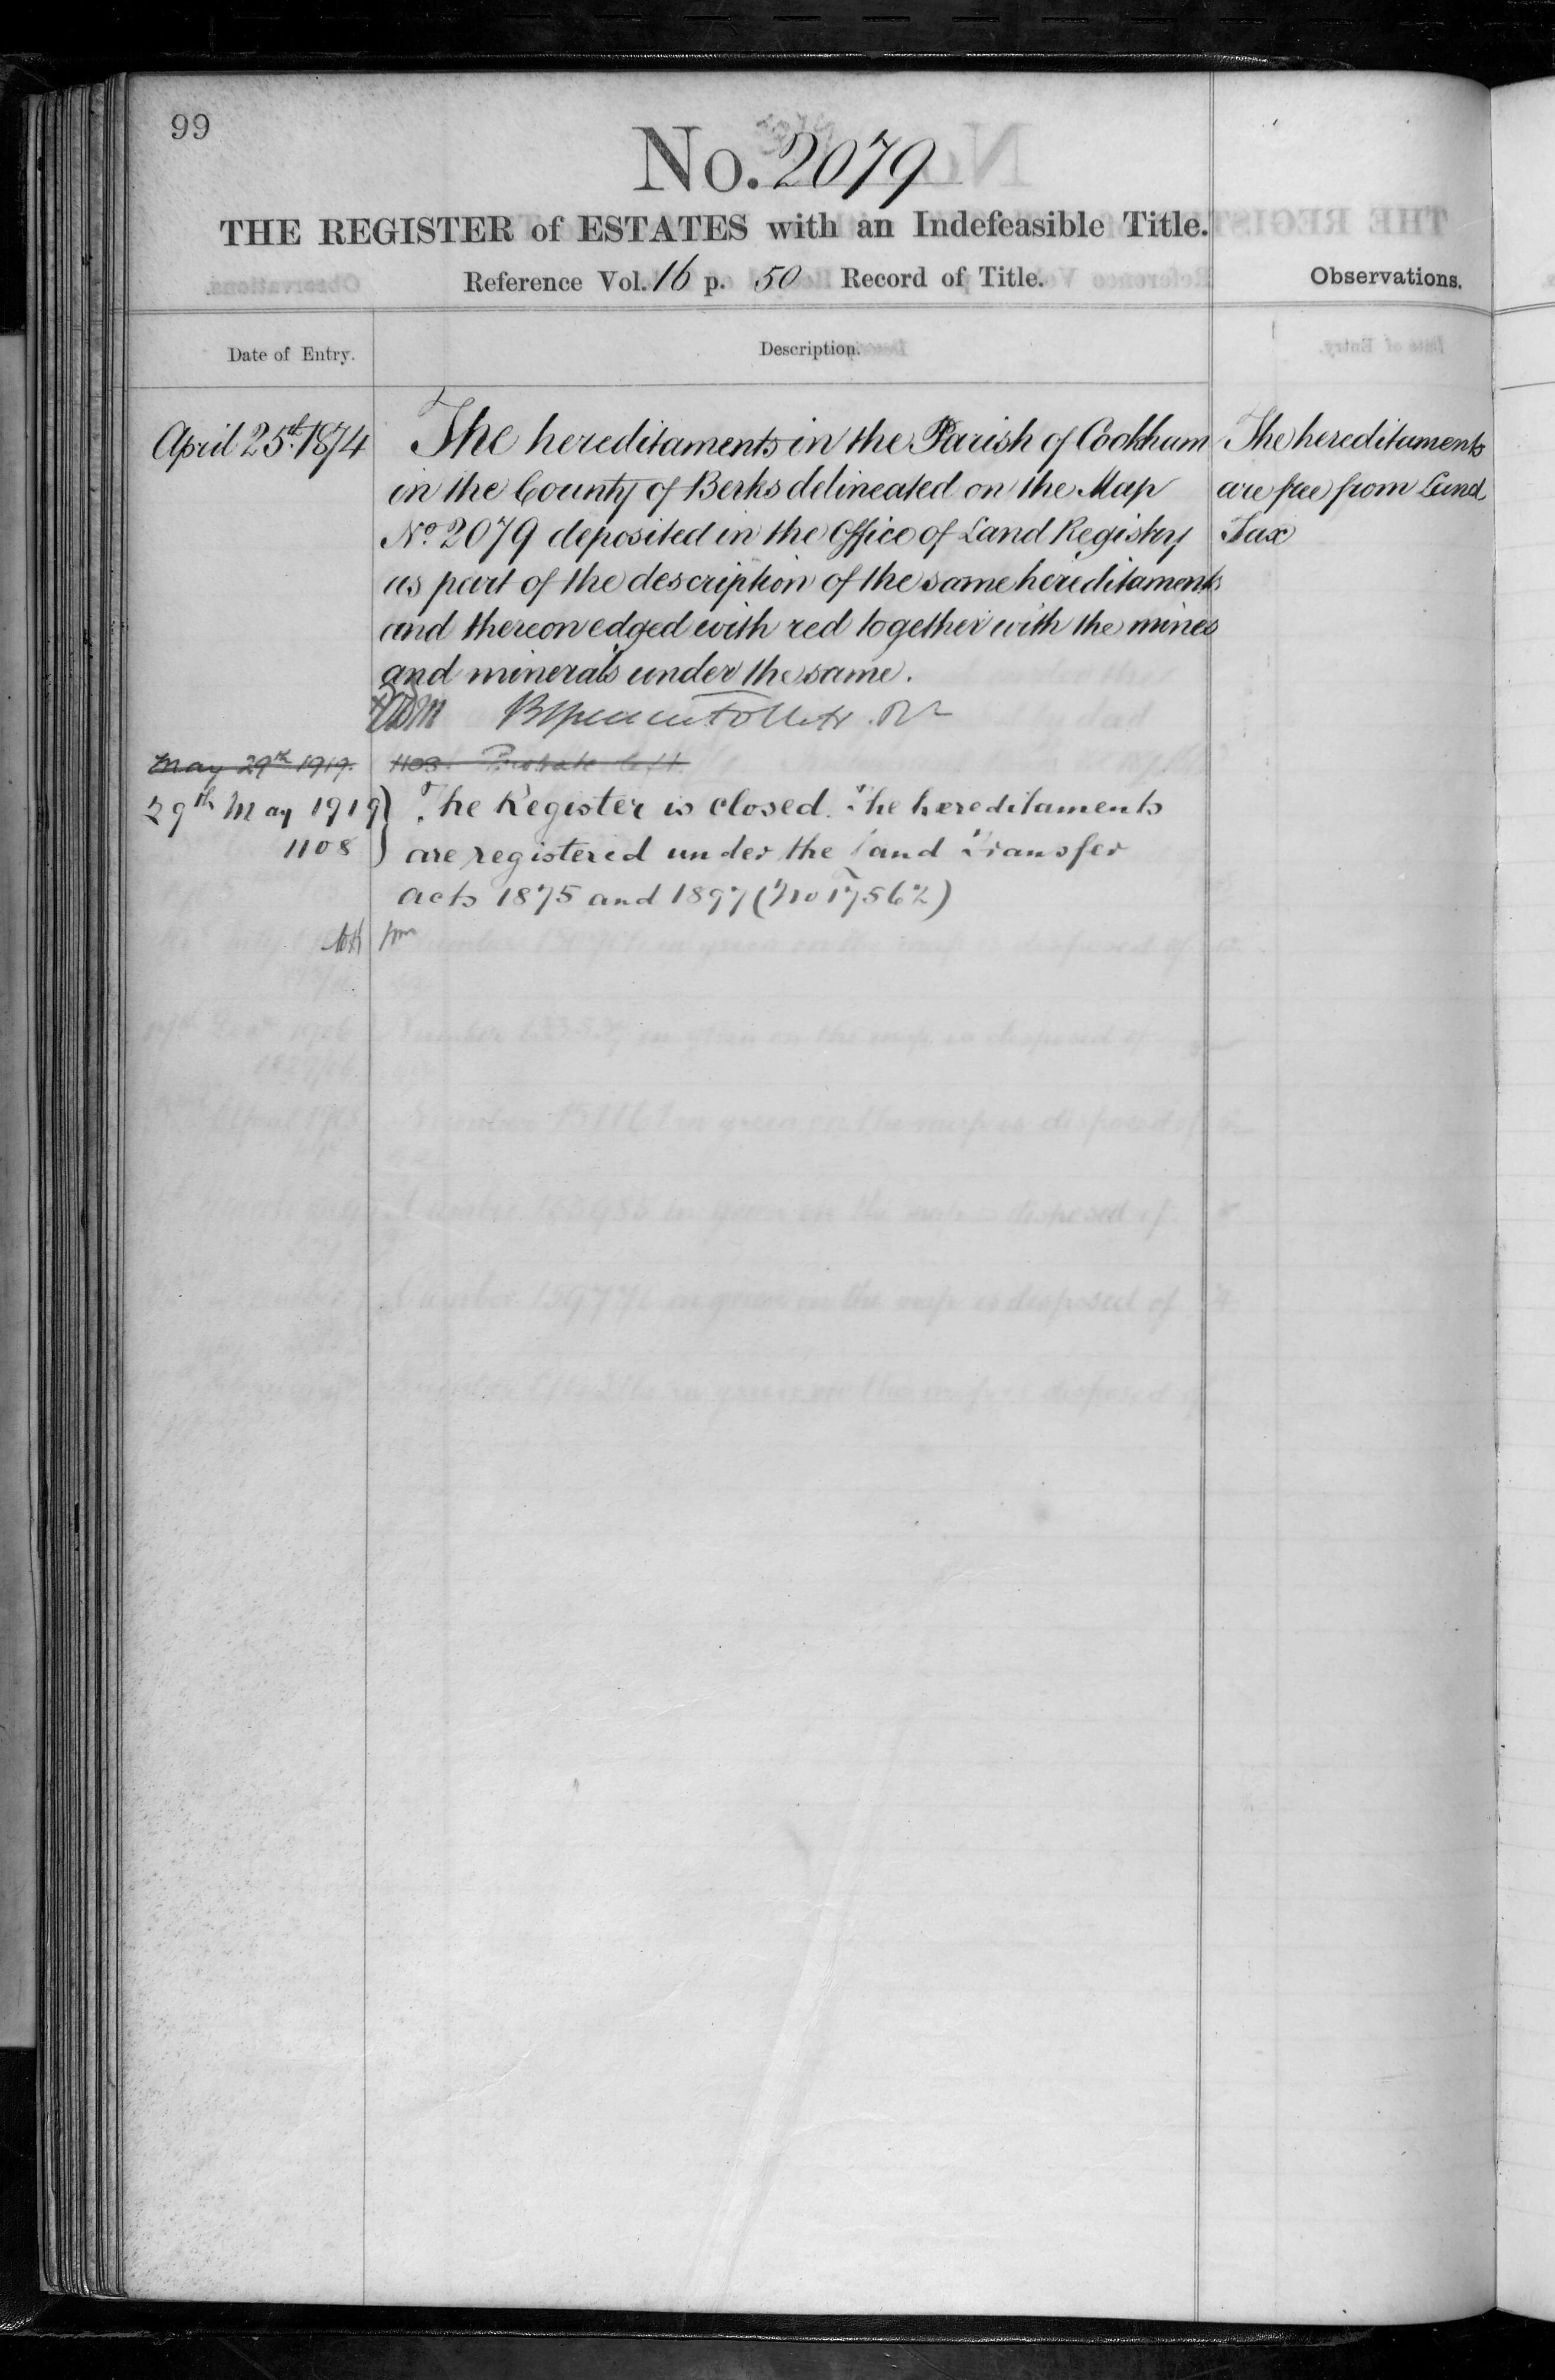 99
No. 2079
THE REGISTER of ESTATES with an Indefeasible Title.
Reference Vol. 16 p. 50 Record of Title.
Observations.
Date of Entry.
Description.
April 25th. 1874
The hereditaments in the Parish of Cookham
in the County of Berks delineated on the Map
No. 2079 deposited in the Office of Land Registry
as part of the description of the same hereditaments
and thereon edged with red together with the mines
and minerals under the same.
The hereditaments
are free from Land
Tax
May 29th 1919.
1108 Probate left
29th May 1919
1108
The Register is closed. The hereditaments
are registered under the Land Transfer
Acts 1875 and 1897 (No 17562)